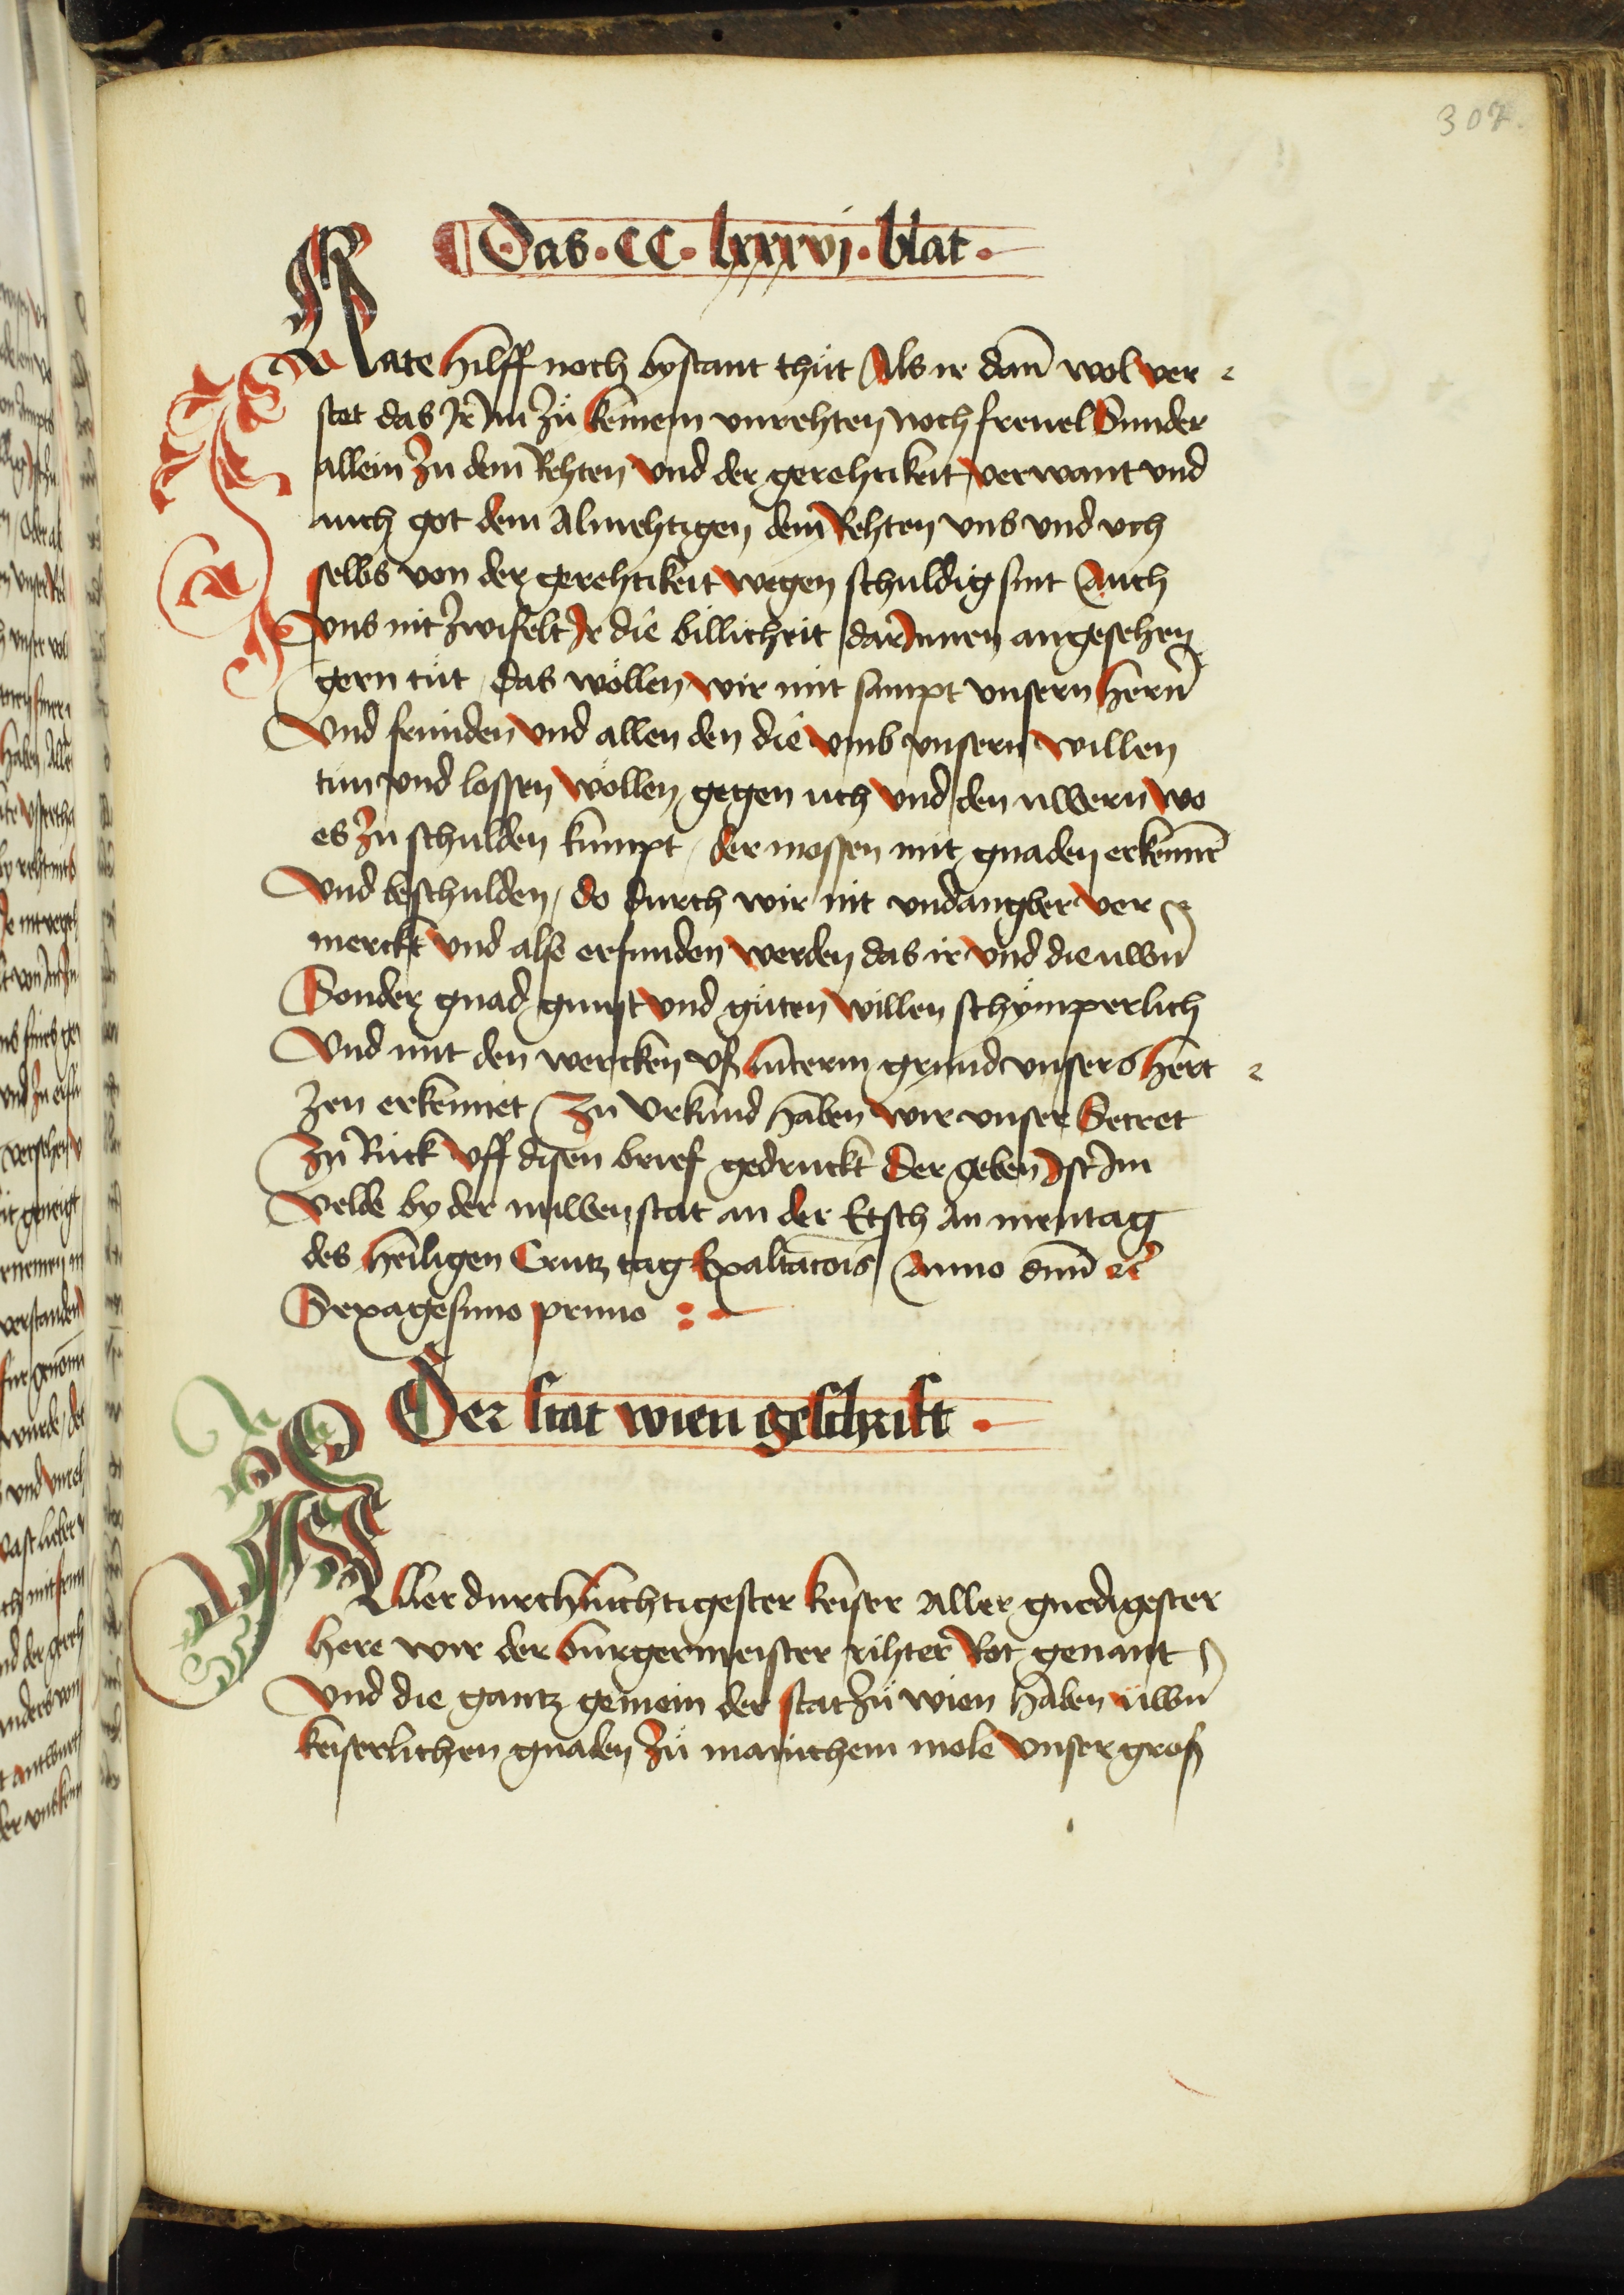 307.
Das · CC · lxxxvj · blat ·
Rate hilff noch bystant thüt Als ir dan̄ wol ver
stet das Ir Im zü keinem vnrehten noch freuel Sunder
allein zu dem Rehten vnd der gerehtikeit verwant vnd
auch got dem Almehtigen dem Rehten vns vnd vch
selbs von der gerehtikeit wegen schuldig sint Auch
vns nit zwifelt Ir die billicheit dar Innen angesehen
gern tüt / das wöllen wir mit sampt vnsern herrn̄
Vnd frunden vnd allen den die vmb vnsern willen
tun vnd lossen wöllen gegen uch vnd den uwern wo
es zu schulden kumpt / der mossen mit gnaden erkennē
Vnd beschulden / do durch wir nit vndangber ver
merckt vnd also erfunden werden das ir vnd die uwn̄
Sonder gnad gunst vnd güten willen schÿmperlich
Vnd mit den wercken vß luterm grund vnsers hert
zen erkennet Zu Vrkund haben wir vnser Secret
Zu Ruck vff disen brief gedruckt Der geben Ist Im
Velde by der nuwenstat an der Etsch An mentag
des heiligen Crutz tag Exaltacōis Anno dnn̄ ꝛc̄
Sexagesimo primo :-
Der stat wien geschrifft ·
Aller durchluchtigester keiser Aller gnedigester
here wir der burgermeister rihter Rot genant
Vnd die gantz gemein der stat zü wien haben üwn̄
keiserlichen gnaden zü manichem mole vnser groß